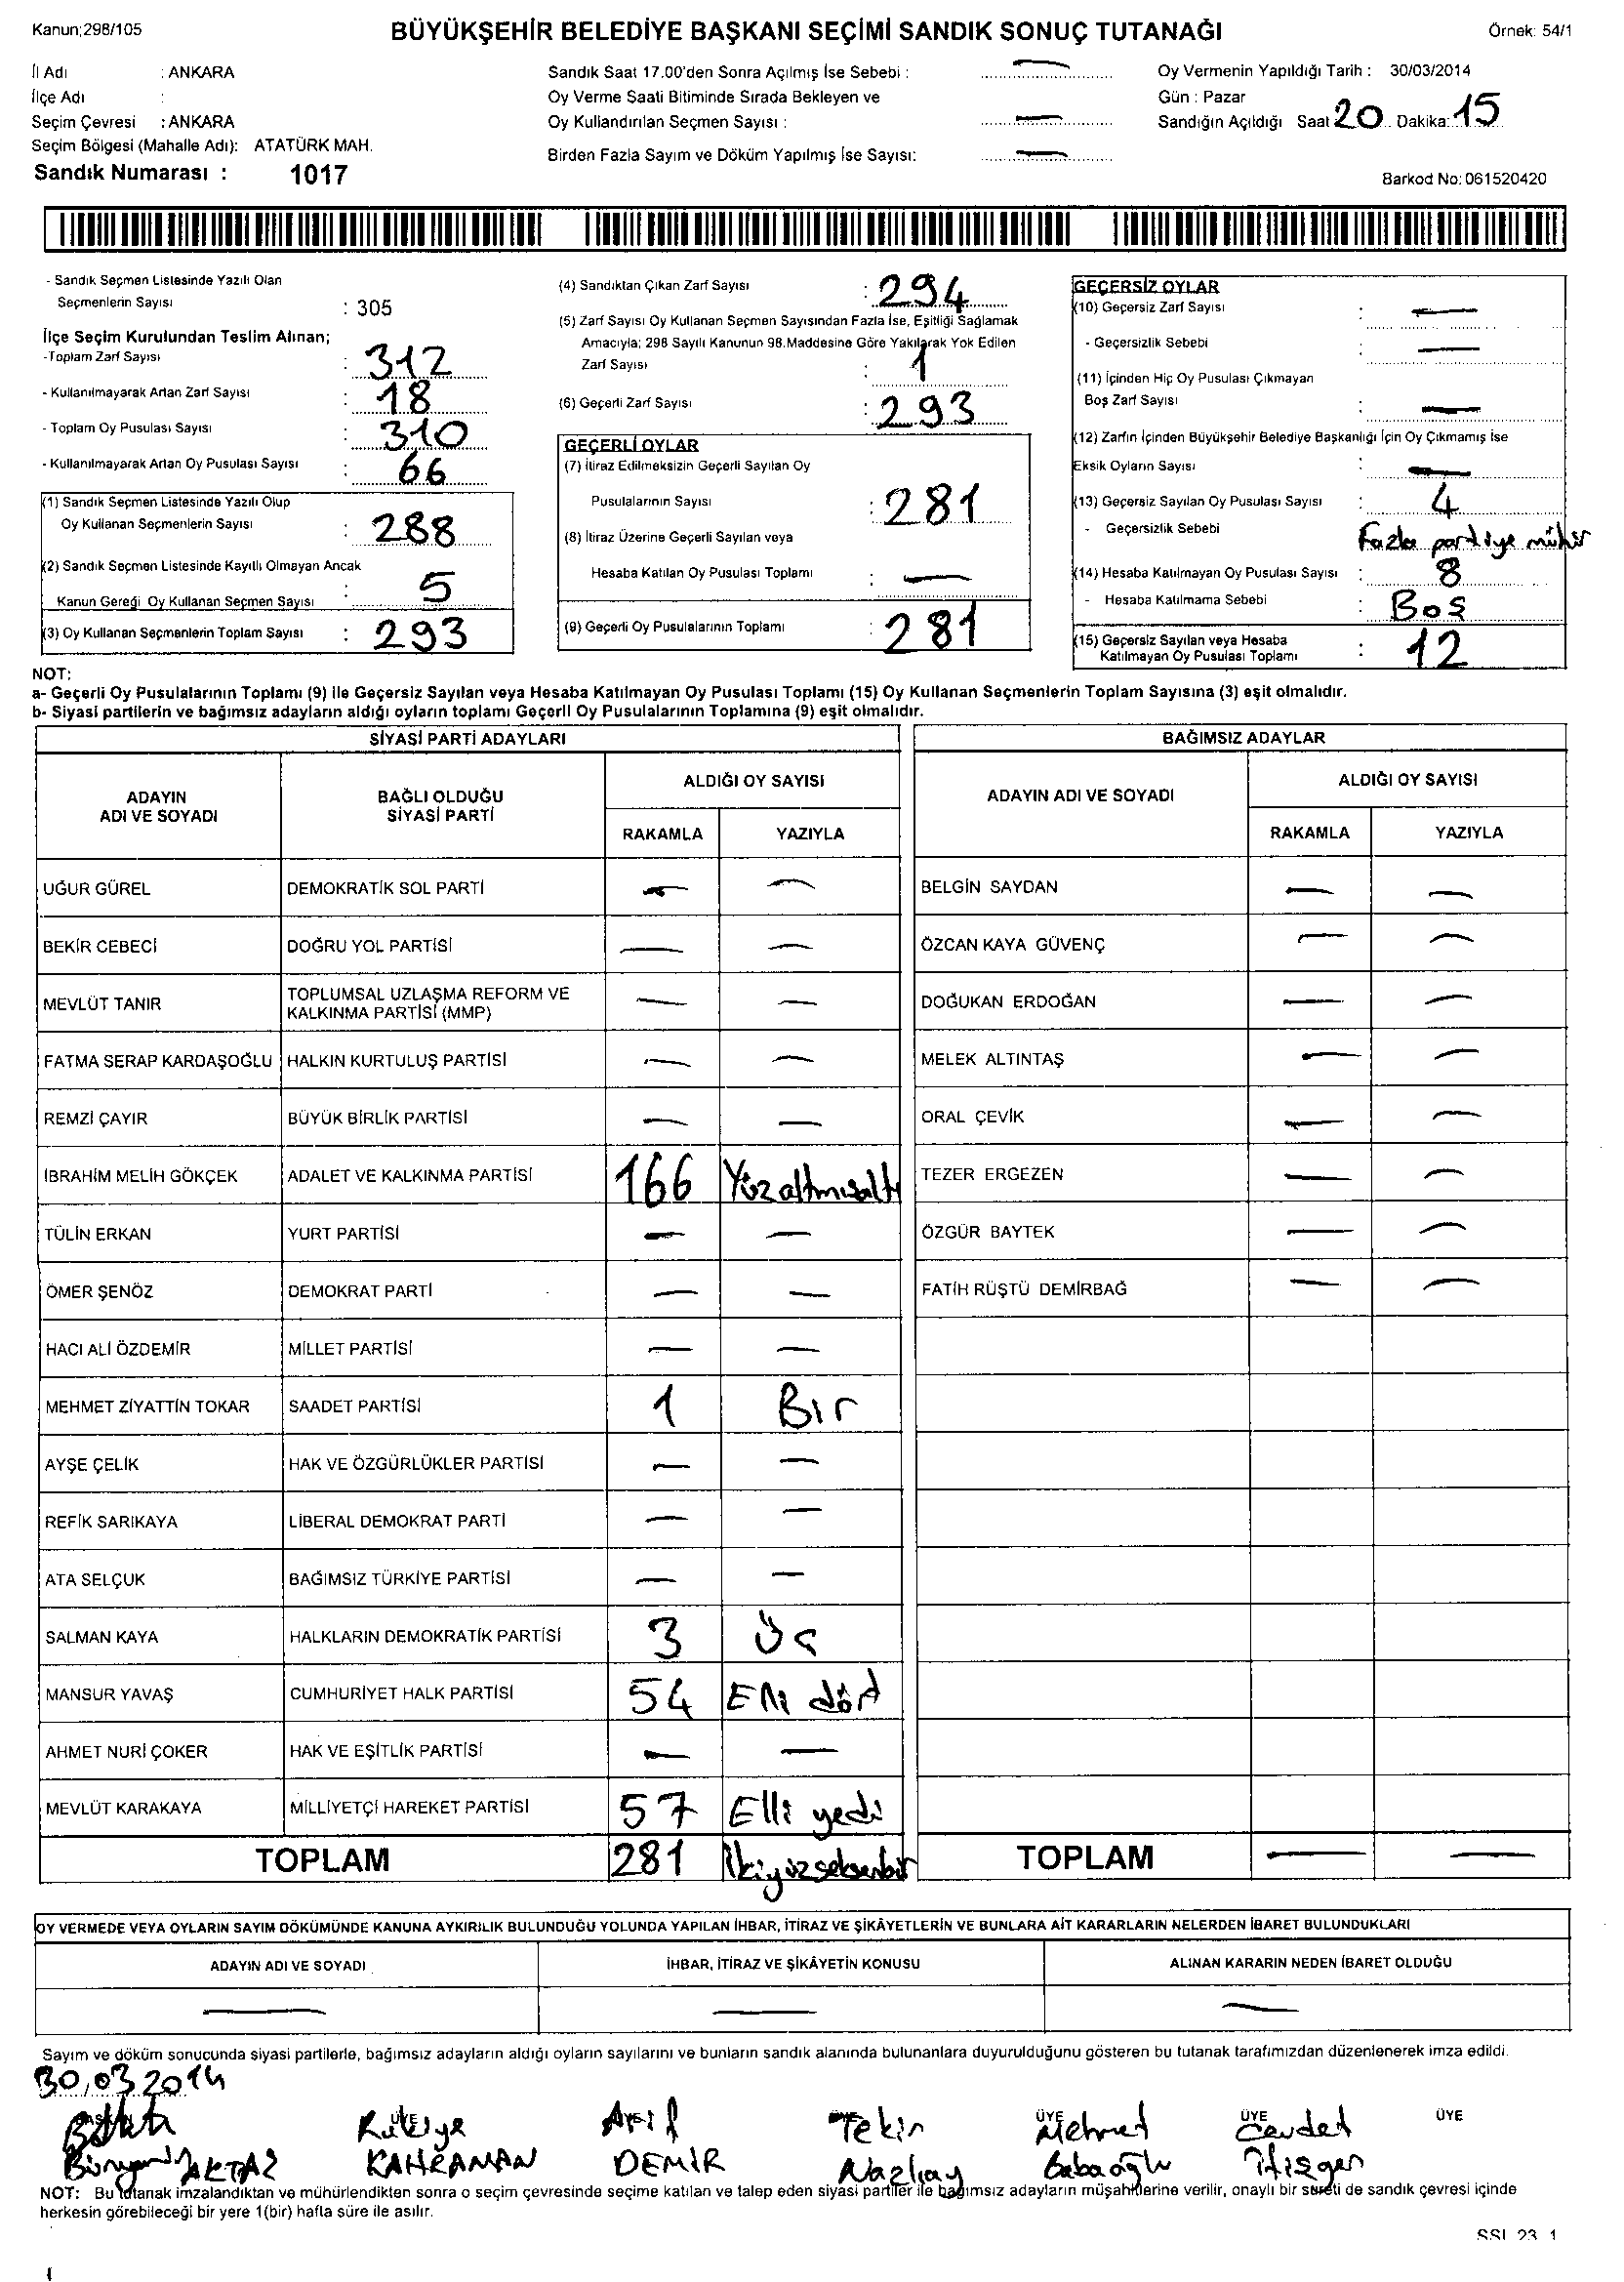 Kanun;298/105
BÜYÜKŞEHİR BELEDİYE BAŞKANI SEÇİMİ SANDIK SONUÇ TUTANAĞI
Örnek: 54/1
İl Adı : ANKARA
İlçe Adı :
Seçim Çevresi : ANKARA
Seçim Bölgesi (Mahalle Adı): ATATÜRK MAH.
Sandık Numarası : 1017
Sandık Saat 17.00'den Sonra Açılmış İse Sebebi : —
Oy Verme Saati Bitiminde Sırada Bekleyen ve
Oy Kullandırılan Seçmen Sayısı : —
Birden Fazla Sayım ve Döküm Yapılmış İse Sayısı: —
Oy Vermenin Yapıldığı Tarih : 30/03/2014
Gün : Pazar
Sandığın Açıldığı Saat 20 Dakika: 15
Barkod No: 061520420
- Sandık Seçmen Listesinde Yazılı Olan
Seçmenlerin Sayısı : 305
İlçe Seçim Kurulundan Teslim Alınan;
-Toplam Zarf Sayısı : 312
- Kullanılmayarak Artan Zarf Sayısı : 18
- Toplam Oy Pusulası Sayısı : 310
- Kullanılmayarak Artan Oy Pusulası Sayısı : 66
(1) Sandık Seçmen Listesinde Yazılı Olup
Oy Kullanan Seçmenlerin Sayısı : 288
(2) Sandık Seçmen Listesinde Kayıtlı Olmayan Ancak
Kanun Gereği Oy Kullanan Seçmen Sayısı : 5
(3) Oy Kullanan Seçmenlerin Toplam Sayısı : 293
(4) Sandıktan Çıkan Zarf Sayısı : 294
(5) Zarf Sayısı Oy Kullanan Seçmen Sayısından Fazla İse, Eşitliği Sağlamak
Amacıyla; 298 Sayılı Kanunun 98.Maddesine Göre Yakılarak Yok Edilen
Zarf Sayısı : 1
(6) Geçerli Zarf Sayısı : 293
GEÇERLİ OYLAR
(7) İtiraz Edilmeksizin Geçerli Sayılan Oy
Pusulalarının Sayısı : 281
(8) İtiraz Üzerine Geçerli Sayılan veya
Hesaba Katılan Oy Pusulası Toplamı : —
(9) Geçerli Oy Pusulalarının Toplamı : 281
GEÇERSİZ OYLAR
(10) Geçersiz Zarf Sayısı : —
- Geçersizlik Sebebi : —
(11) İçinden Hiç Oy Pusulası Çıkmayan
Boş Zarf Sayısı : —
(12) Zarfın İçinden Büyükşehir Belediye Başkanlığı İçin Oy Çıkmamış İse
Eksik Oyların Sayısı : —
(13) Geçersiz Sayılan Oy Pusulası Sayısı : 4
- Geçersizlik Sebebi : Fazla partiye mühür
(14) Hesaba Katılmayan Oy Pusulası Sayısı : 8
- Hesaba Katılmama Sebebi : Boş
(15) Geçersiz Sayılan veya Hesaba
Katılmayan Oy Pusulası Toplamı : 12
NOT:
a- Geçerli Oy Pusulalarının Toplamı (9) ile Geçersiz Sayılan veya Hesaba Katılmayan Oy Pusulası Toplamı (15) Oy Kullanan Seçmenlerin Toplam Sayısına (3) eşit olmalıdır.
b- Siyasi partilerin ve bağımsız adayların aldığı oyların toplamı Geçerli Oy Pusulalarının Toplamına (9) eşit olmalıdır.
SİYASİ PARTİ ADAYLARI
ADAYIN ADI VE SOYADI
BAĞLI OLDUĞU SİYASİ PARTİ
ALDIĞI OY SAYISI
RAKAMLA YAZIYLA
UĞUR GÜREL DEMOKRATİK SOL PARTİ — —
BEKİR CEBECİ DOĞRU YOL PARTİSİ — —
MEVLÜT TANIR TOPLUMSAL UZLAŞMA REFORM VE KALKINMA PARTİSİ (MMP) — —
FATMA SERAP KARDAŞOĞLU HALKIN KURTULUŞ PARTİSİ — —
REMZİ ÇAYIR BÜYÜK BİRLİK PARTİSİ — —
İBRAHİM MELİH GÖKÇEK ADALET VE KALKINMA PARTİSİ 166 Yüz altmışaltı
TÜLİN ERKAN YURT PARTİSİ — —
ÖMER ŞENÖZ DEMOKRAT PARTİ — —
HACI ALİ ÖZDEMİR MİLLET PARTİSİ — —
MEHMET ZİYATTİN TOKAR SAADET PARTİSİ 1 Bir
AYŞE ÇELİK HAK VE ÖZGÜRLÜKLER PARTİSİ — —
REFİK SARIKAYA LİBERAL DEMOKRAT PARTİ — —
ATA SELÇUK BAĞIMSIZ TÜRKİYE PARTİSİ — —
SALMAN KAYA HALKLARIN DEMOKRATİK PARTİSİ 3 Üç
MANSUR YAVAŞ CUMHURİYET HALK PARTİSİ 54 Elli dört
AHMET NURİ ÇOKER HAK VE EŞİTLİK PARTİSİ — —
MEVLÜT KARAKAYA MİLLİYETÇİ HAREKET PARTİSİ 57 Elli yedi
TOPLAM 281 İkiyüzseksenbir
BAĞIMSIZ ADAYLAR
ADAYIN ADI VE SOYADI
ALDIĞI OY SAYISI
RAKAMLA YAZIYLA
BELGİN SAYDAN — —
ÖZCAN KAYA GÜVENÇ — —
DOĞUKAN ERDOĞAN — —
MELEK ALTINTAŞ — —
ORAL ÇEVİK — —
TEZER ERGEZEN — —
ÖZGÜR BAYTEK — —
FATİH RÜŞTÜ DEMİRBAĞ — —
TOPLAM — —
OY VERMEDE VEYA OYLARIN SAYIM DÖKÜMÜNDE KANUNA AYKIRILIK BULUNDUĞU YOLUNDA YAPILAN İHBAR, İTİRAZ VE ŞİKÂYETLERİN VE BUNLARA AİT KARARLARIN NELERDEN İBARET BULUNDUKLARI
ADAYIN ADI VE SOYADI İHBAR, İTİRAZ VE ŞİKÂYETİN KONUSU ALINAN KARARIN NEDEN İBARET OLDUĞU
— — —
Sayım ve döküm sonucunda siyasi partilerle, bağımsız adayların aldığı oyların sayılarını ve bunların sandık alanında bulunanlara duyurulduğunu gösteren bu tutanak tarafımızdan düzenlenerek imza edildi.
30.03.2014
BAŞKAN ÜYE ÜYE ÜYE ÜYE ÜYE ÜYE
Rukiye Arif Tekin Mehmet Cevdet
AKTAŞ KAHRAMAN DEMİR Nazlıay Babaoğlu
NOT: Bu tutanak imzalandıktan ve mühürlendikten sonra o seçim çevresinde seçime katılan ve talep eden siyasi partiler ile bağımsız adayların müşahitlerine verilir, onaylı bir sureti de sandık çevresi içinde
herkesin görebileceği bir yere 1(bir) hafta süre ile asılır.
SSI 23 1